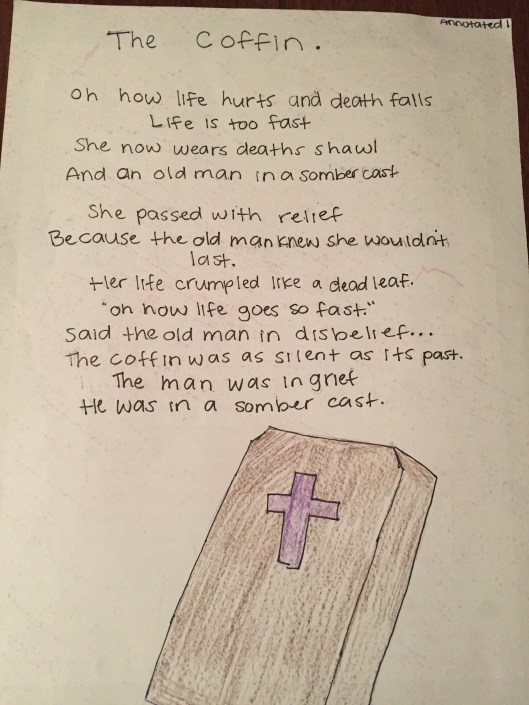 Annotated!
The Coffin.
Oh how life hurts and death falls
Life is too fast
She now wears deaths shawl
And an old man in a somber cast
She passed with relief
Because the old man knew she wouldn't
last.
Her life crumpled like a dead leaf.
"oh how life goes so fast."
Said the old man in disbelief...
The coffin was as silent as its past.
The man was in grief
He was in a somber cast.